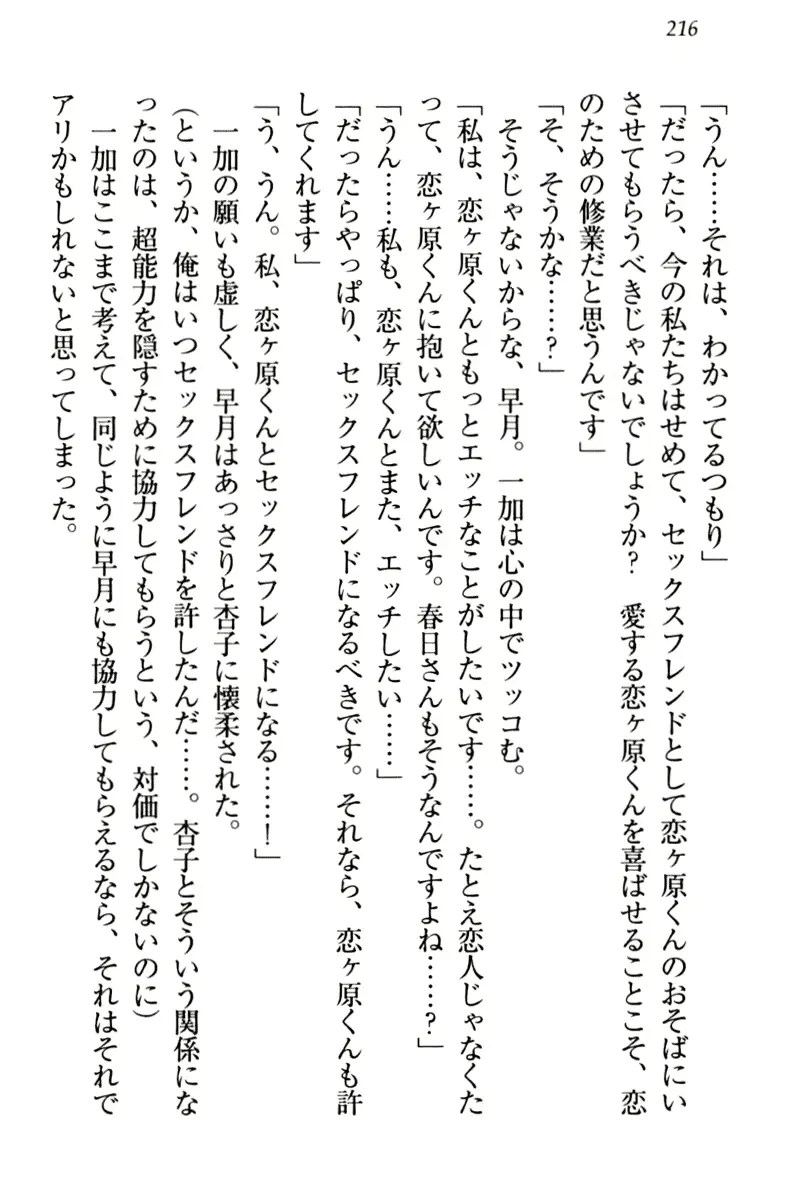 216
「うん……それは、わかってるつもり」
「だったら、今の私たちはせめて、セックスフレンドとして恋ヶ原くんのおそばにい
させてもらうべきじゃないでしょうか？　愛する恋ヶ原くんを喜ばせることこそ、恋
のための修業だと思うんです」
「そ、そうかな……？」
　そうじゃないからな、早月。一加は心の中でツッコむ。
「私は、恋ヶ原くんともっとエッチなことがしたいです……。たとえ恋人じゃなくた
って、恋ヶ原くんに抱いて欲しいんです。春日さんもそうなんですよね……？」
「うん……私も、恋ヶ原くんとまた、エッチしたい……」
「だったらやっぱり、セックスフレンドになるべきです。それなら、恋ヶ原くんも許
してくれます」
「う、うん。私、恋ヶ原くんとセックスフレンドになる……！」
　一加の願いも虚しく、早月はあっさりと杏子に懐柔された。
（というか、俺はいつセックスフレンドを許したんだ……。杏子とそういう関係にな
ったのは、超能力を隠すために協力してもらうという、対価でしかないのに）
　一加はここまで考えて、同じように早月にも協力してもらえるなら、それはそれで
アリかもしれないと思ってしまった。